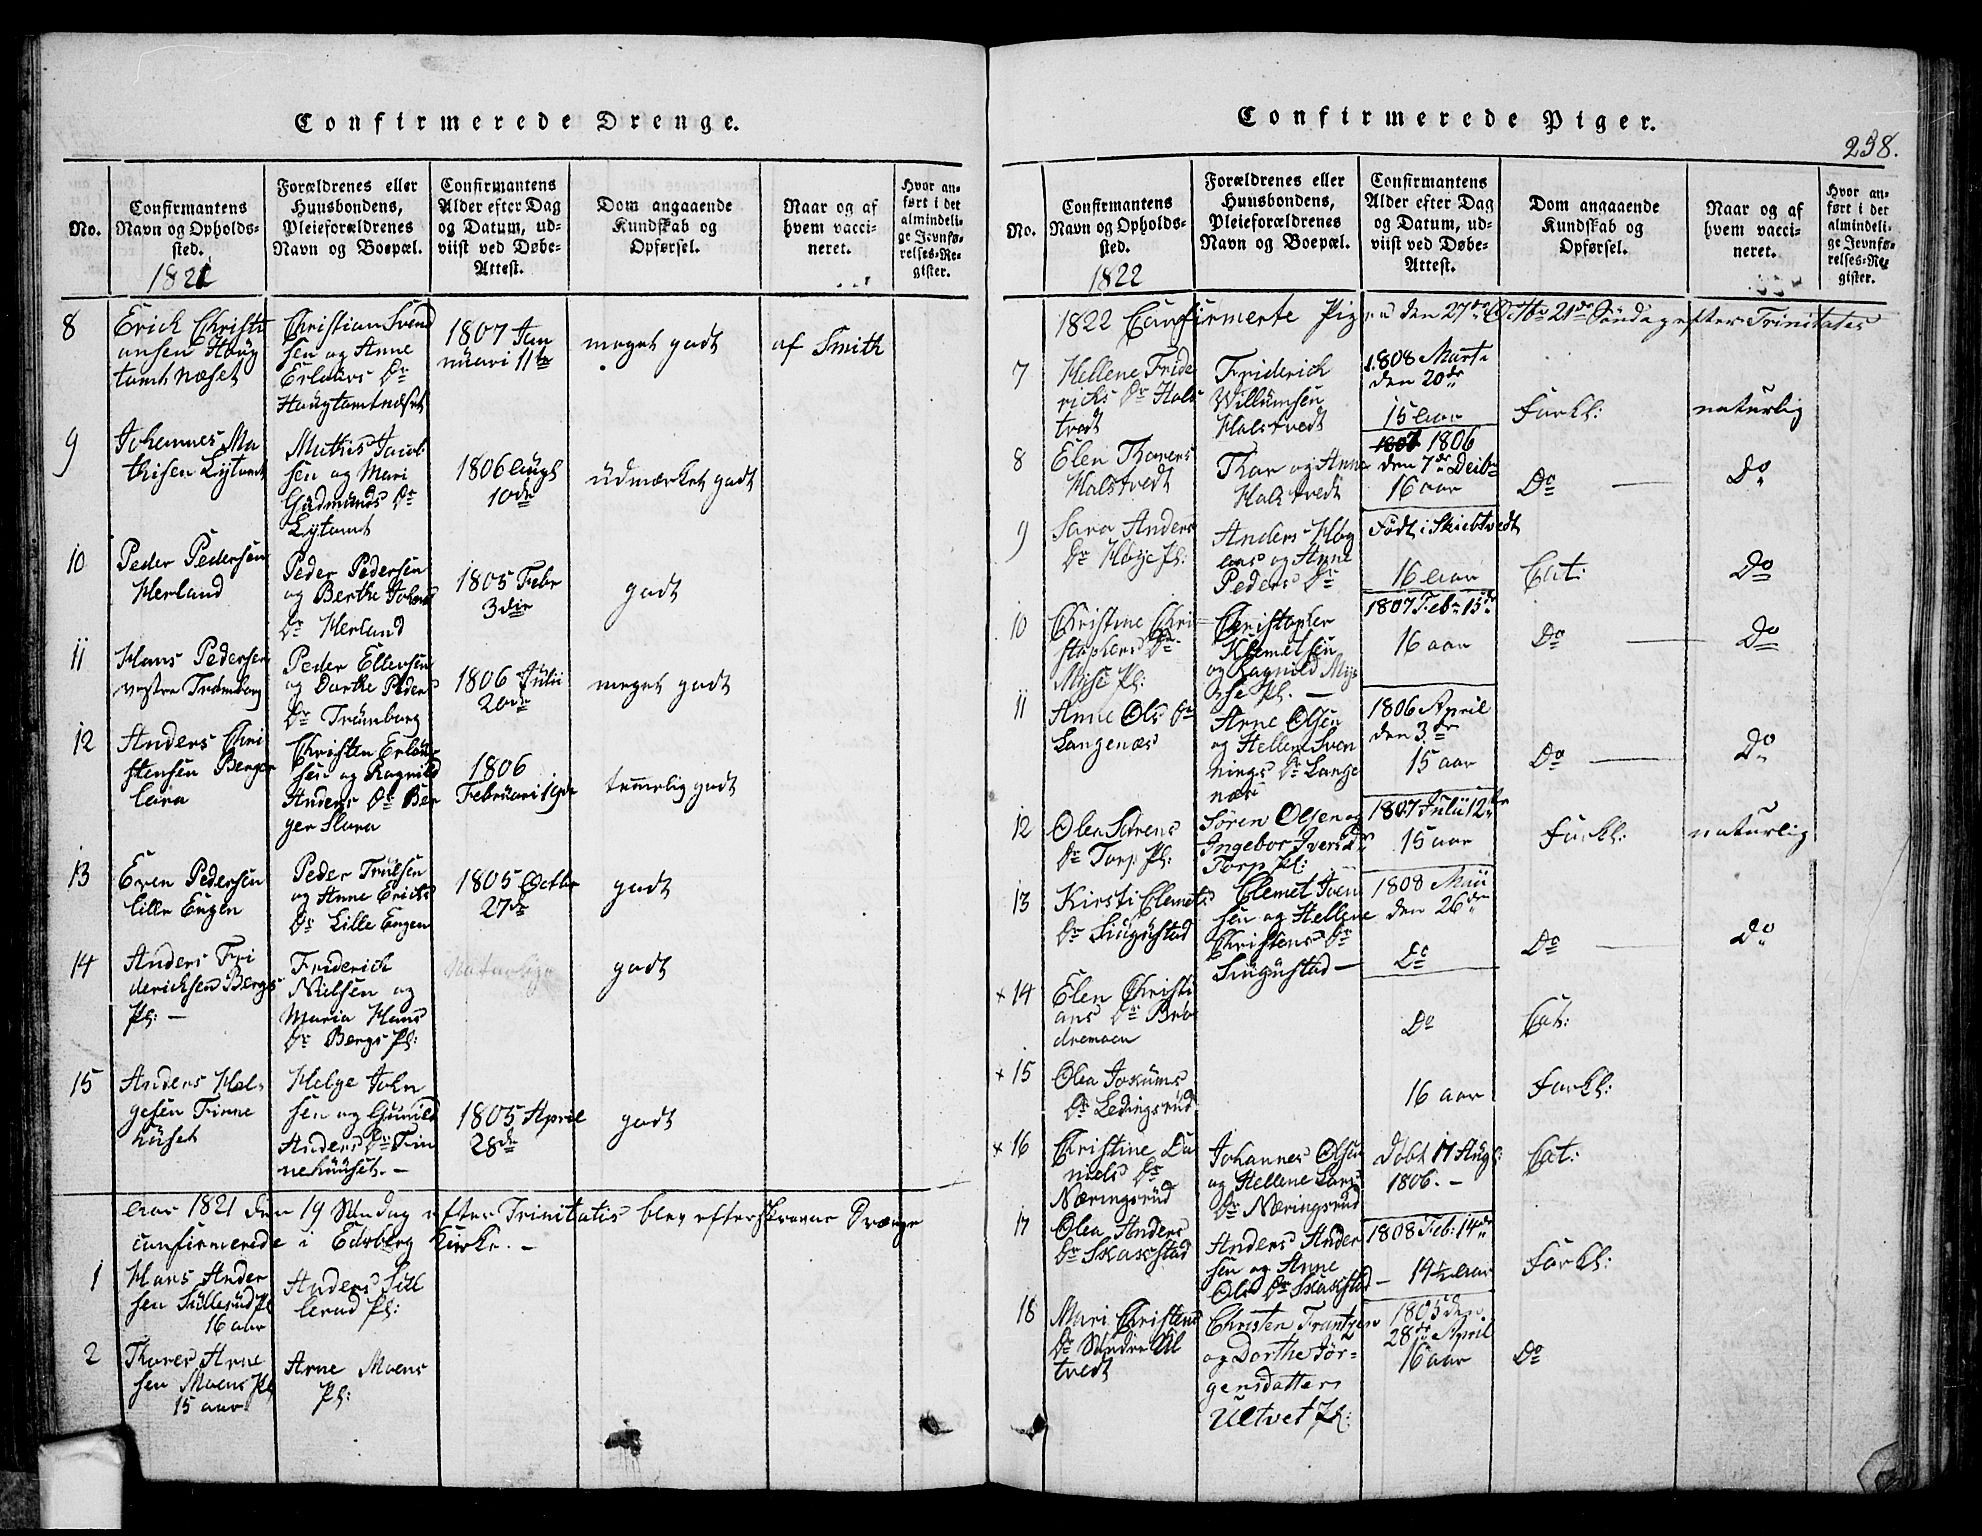 Confirmerede Drenge.
No.
Confirmantens
Navn og Opholds-
sted.
1821
Forældrenes eller
Huusbondens,
Pleieforældrenes
Navn og Boepæl.
Confirmantens
Alder efter Dag
og Datum, ud-
viist ved Døbe-
Attest.
Dom angaaende
Kundskab og
Opførsel.
Naar og af
hvem vacci-
neret.
Hvor an-
ført i det
almindeli-
ge Jevnfø-
relses-Re-
gister.
8
Erich Christi
ansen Houg
tomt Næset
Christian Svend
sen og Anne
Erlands Dr
Hougtomtnæset
1807 Jan
nuari 11te
meget godt
af Smith
9
Johannes Ma
thisen Lytomt
Mathis Jacob
sen og Mari
Gudmunds Dr
Lytomt
1806 Augt
10de
udmærket godt
10
Peder Pedersen
Herland
Peder Pedersen
og Berthe Johns
Dr Herland
1805 Febr
3die
godt
11
Hans Pedersen
vestre Trømborg
Peder Ellevsen
og Dorthe Peders
Dr Trømborg
1806 Julii
20de
meget godt
12
Anders Chri
stensen Berger
Christen Erland
sen og Ragnild
Anders Dr Ber
ger
1806
Februari 19de
temmelig godt
13
Even Pedersen
lille Engen
Peder Truelsen
og Anne Erichs
Dr Lille Engen
1805 Octbr
27de
godt
14
Anders Fri
derichsen Bergs
Pl: —
Friderich
Nielsen og
Maria Hans
Dr Bergs Pl:
Naturlige
godt
15
Anders Hel-
gesen Finne
huset
Helge John
sen og Gunild
Anders Dr Fin
nehuuset. —
1805 April
28de
godt
Aar 1821 den 19 Søndag efter Trinitatis blev efterskrevne Drænge
confirmerede i Edsberg Kirke. —
1
Hans Ander
sen Sullerud Pl
16 aar
Anders Sul
lerud Pl:
2
Thorer Arne
sen Moens Pl
15 aar
Arne Moens
Pl:
Confirmerede Piger.
238.
No.
Confirmantens
Navn og Opholds-
sted.
1822
Forældrenes eller
Huusbondens,
Pleieforældrenes
Navn og Boepæl.
Confirmantens
Alder efter Dag
og Datum, ud-
viist ved Døbe-
Attest.
Dom angaaende
Kundskab og
Opførsel.
Naar og af
hvem vacci-
neret.
Hvor an-
ført i det
almindeli-
ge Jevnfø-
relses-Re-
gister.
1822 Confirmerte Piger den 27de Octbr 21de Søndag efter Trinitates
7
Hellene Fride
richs Dr Hals
tvedt
Friderich
Willumsen
Halstvedt
1808 Marts
den 20de
15 Aar
Forkl:
naturlig
8
Elen Thorers
Halstvedt
Thor og Anne
Halstvedt
1807 1806
den 7de
16 aar
Do —
Do
9
Sara Anders
Dr Høye Pl:
Anders
og Anne
Peders Dr
Født i Skiebtvedt
16 Aar
Cat:
Do
10
Christine Chri
stophers Dr
Myse Pl:
Christopher
Klemetsen
og Ragnild My
se Pl. —
1807 Feb: 15de
16 aar
Do —
Do
11
Anne Ols Dr
Langenæs
Arne Olsen
og Hellen Sven
nings Dr Lange
næs
1806 April
den 3de
15 aar
Do —
Do
12
Olea Sørens
Dr Torp Pl:
Søren Olsen og
Ingebor Ivers Dr
Torp Pl:
1807 Julii 12te
15 aar
Forkl:
naturlig
13
Kirsti Clemets
Dr Singustad
Clemet Iven
sen og Hellene
Christens Dr
Singustad —
1808 Maii
den 26de
Do
Do —
Do
× 14
Elen Christi
ans Dr Brø
dremoen
Do
Cat:
× 15
Olea Jokums
Dr Ledingsrud
16 aar
Forkl:
× 16
Christine Da
niels Dr
Næringsrud
Johannes Olsen
og Hellene Lars
Dr Næringsrud
døbt 17 Aug:
1806. —
Cat:
17
Olea Anders
Dr Skakstad
Anders Ander
sen og Anne
Ols Dr Skakstad
1808 Feb: 14de
— 14½ Aar
Forkl:
18
Mari Christens
Dr Søndre Ul
tvedt
Christen Frantzen
og Dorthe Jør-
gensdatter
Ultvet Pl:
1805 den
28de April
16 aar
Do